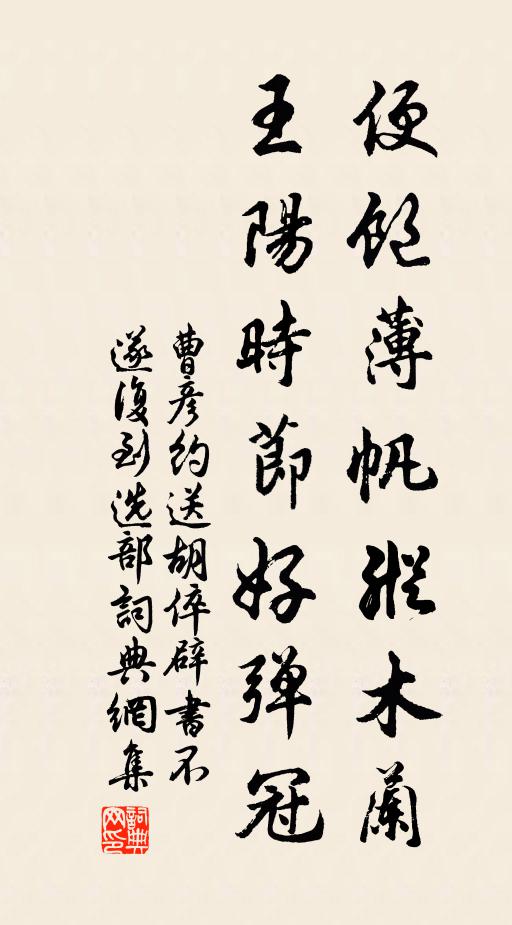 便飽薄帆縱木蘭
王陽時節好弹冠
曹彦約送胡倅辟書不
遂復到选部詞典網集
詞典网印